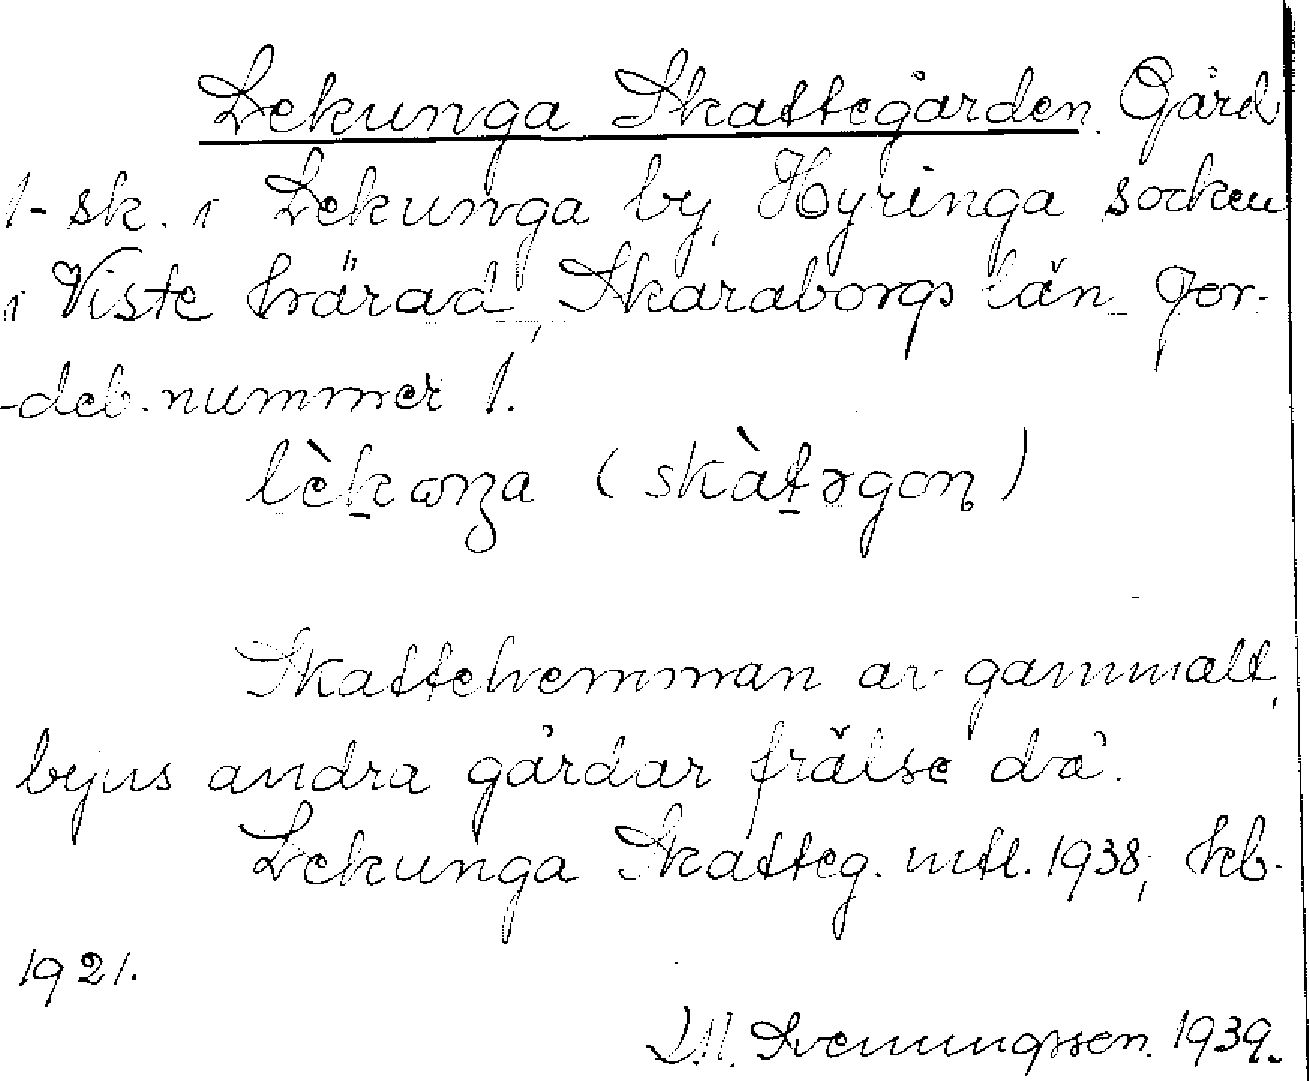 Lekunga Skattegården. Gård
1 sk. i Lekunga by, Hyringa socken
i Viste härad, Skaraborgs län. Jor-
-deb. nummer 1.
lèkωŋa (skàtəgoɳ)
Skattehemman av gammalt,
byns andra gårdar frälse då.
Lekunga Skatteg. mtl. 1938, kb.
1921.
Svenungsson. 1939.